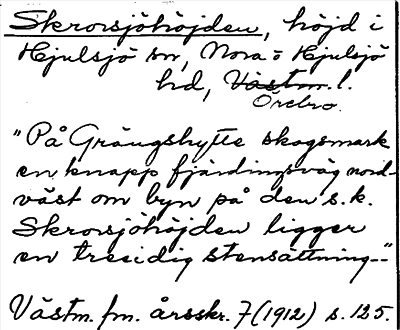 Skrorsjöhöjden, höjd i
Hjulsjö sn, Nora o Hjulsjö
hd, Västm. l.
Örebro.
"På Grängshytte skogsmark
en knapp fjärdingsväg nord-
väst om byn på den s.k.
Skrorsjöhöjden ligger
en treeidig stensättning--"
Västm. fm. årsskr. 7 (1912) s. 125.